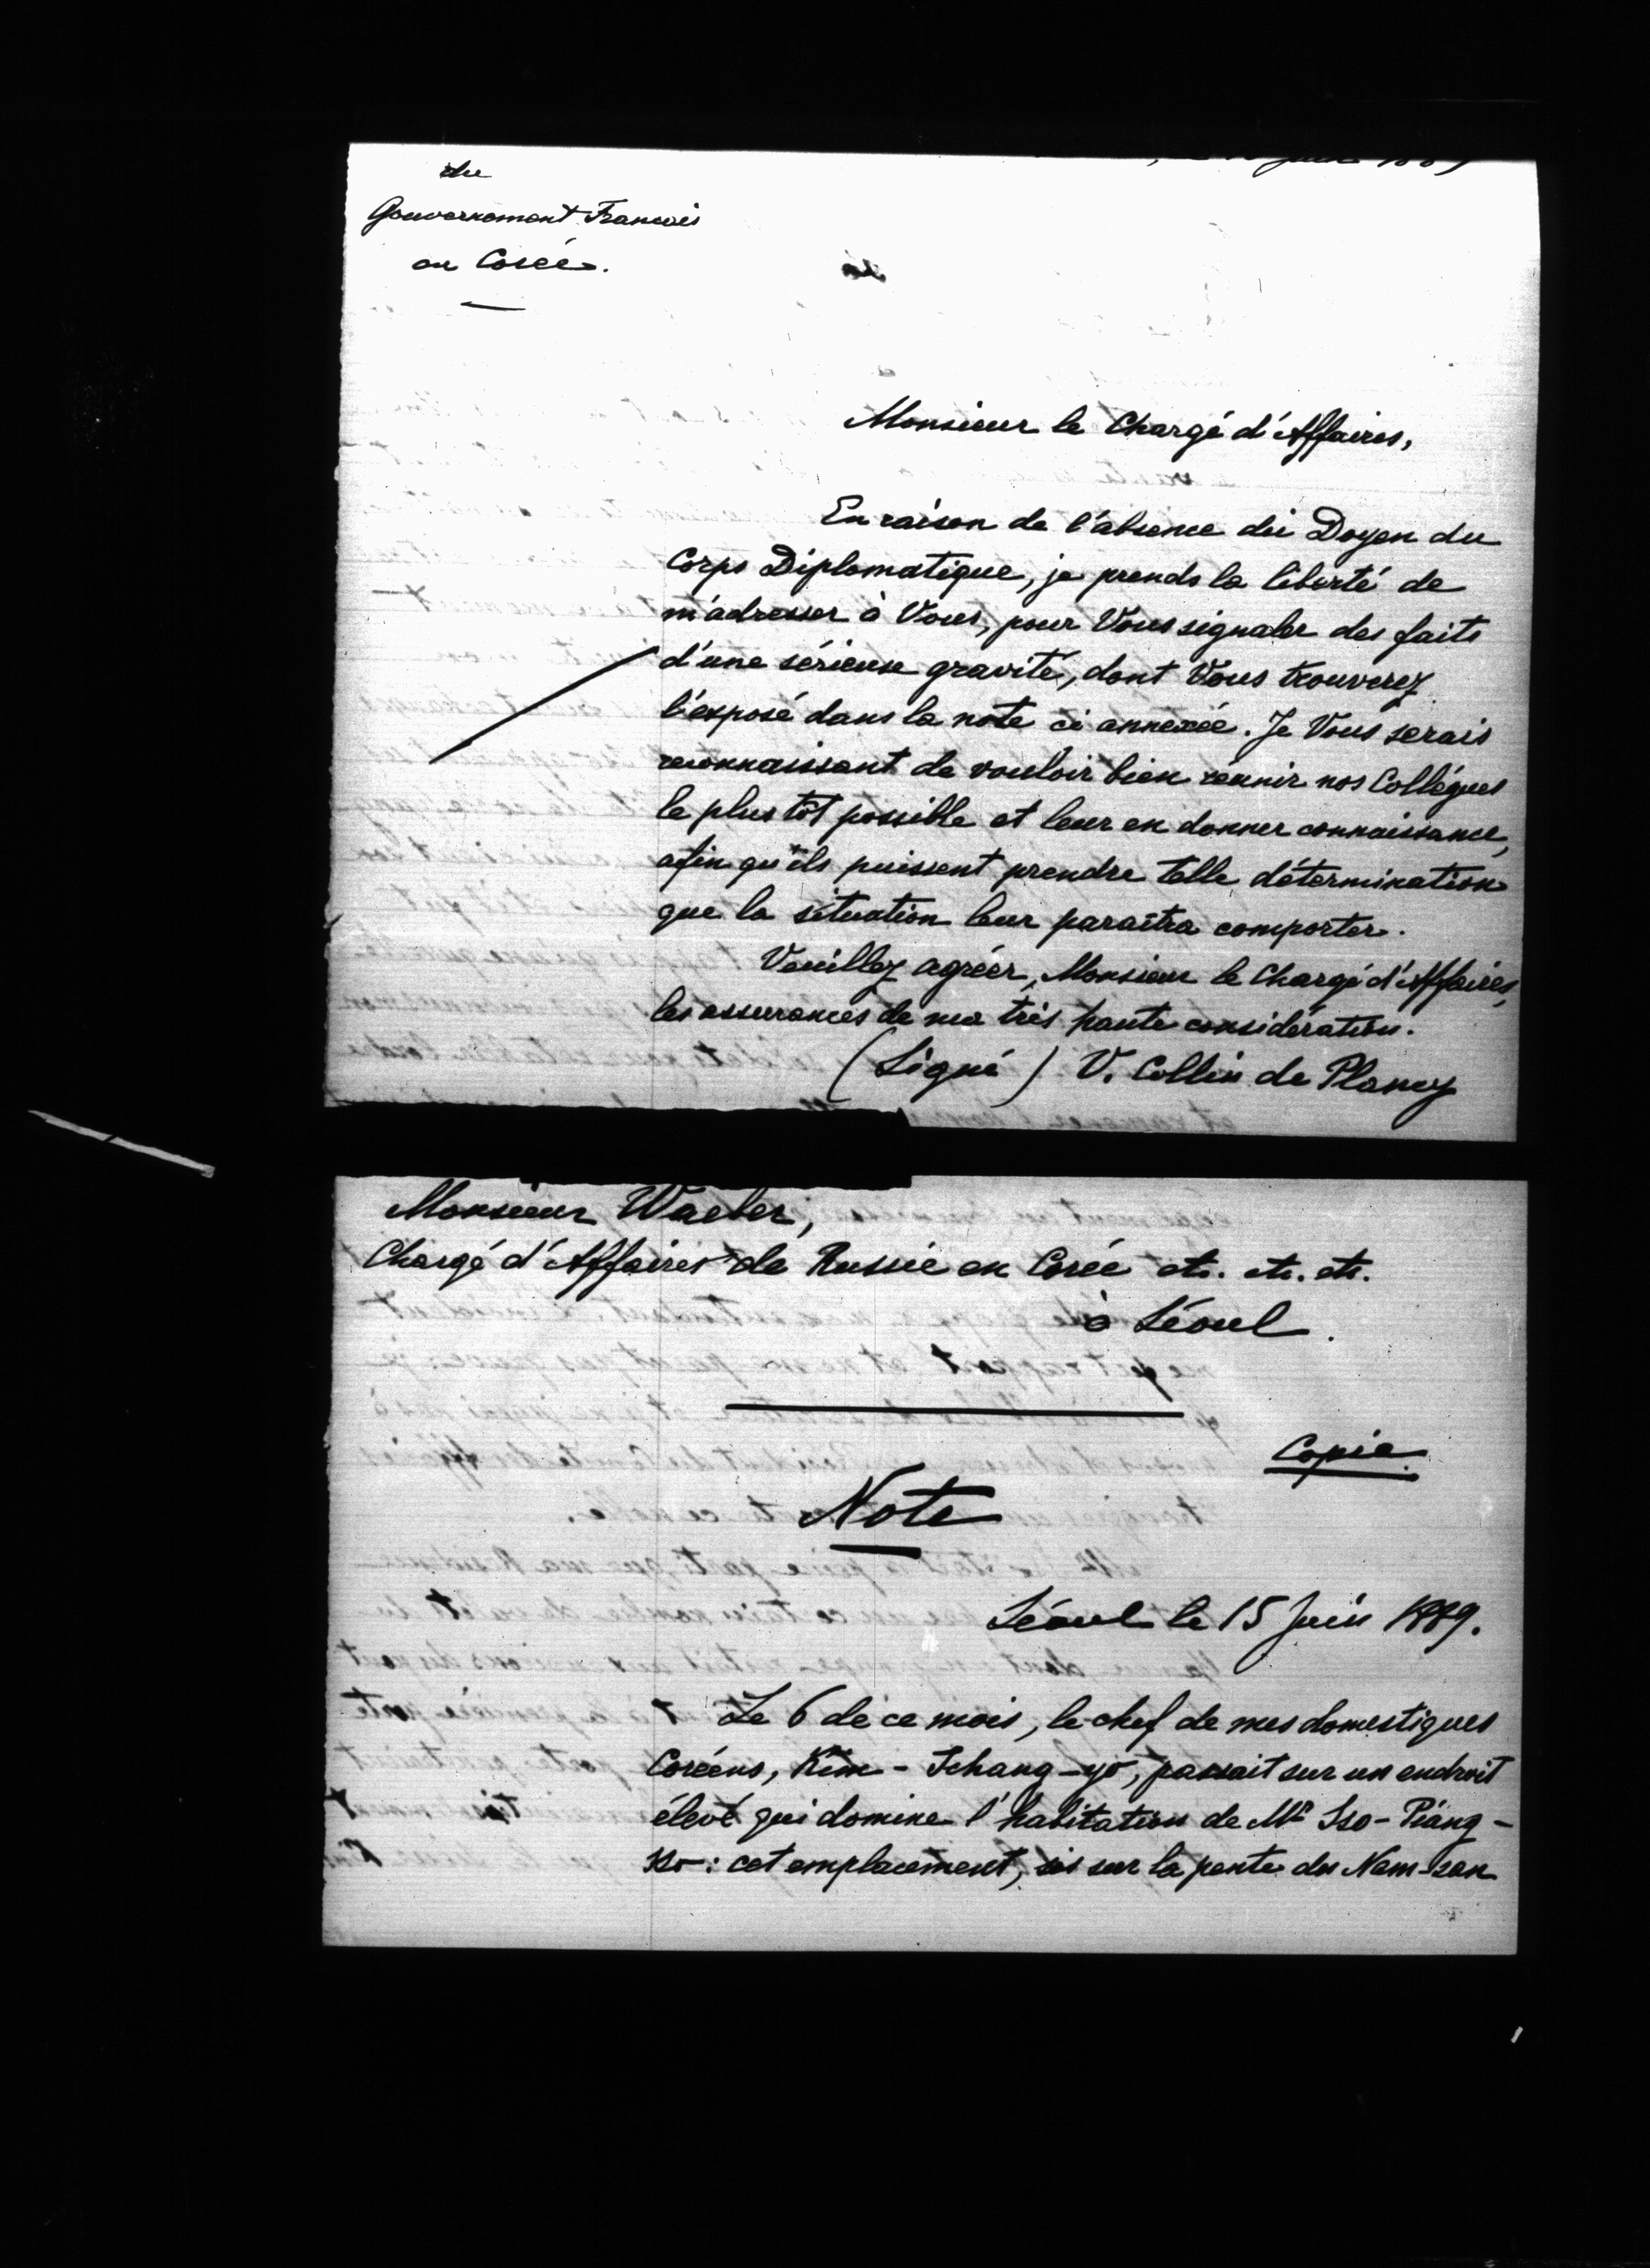 du
Gouvernement Français
en Corée.
Monsieur le Chargé d'Affaires,
En raison de l'absence du Doyen du
Corps Diplomatique, je prends la liberté de
m'adresser à Vous, pour Vous signaler des faits
d'une sérieuse gravité, dont Vous trouverez
l'exposé dans la note ci annexée. Je Vous serais
reconnaissant de vouloir bien réunir nos Collègues
le plus tôt possible et leur en donner connaissance,
afin qu'ils puissent prendre telle détermination
que la situation leur paraîtra comporter.
Veuillez agréer, Monsieur le Chargé d'Affaires,
les assurances de ma très haute considération.
(Signé) V. Collin de Plancy
Monsieur Waeber,
Chargé d'Affaires de Russie en Corée etc. etc. etc.
à Séoul.
Copie.
Note
Séoul le 15 Juin 1889.
Le 6 de ce mois, le chef de mes domestiques
Coréens, Kim-Tchang-yo, passait sur un endroit
élevé qui domine l'habitation de Mr Sso-Piäng-
sso: cet emplacement, sis sur la pente du Nam-san